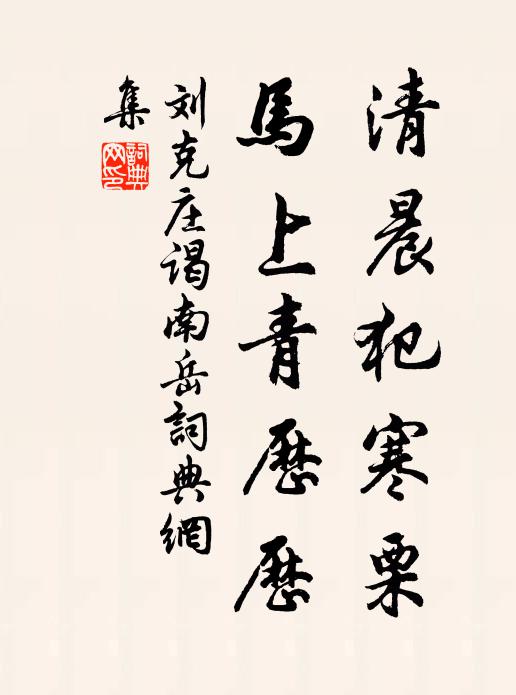 清晨犯寒栗
馬上青歷歷
刘克庄谒南岳詞典網
集
詞典
网印